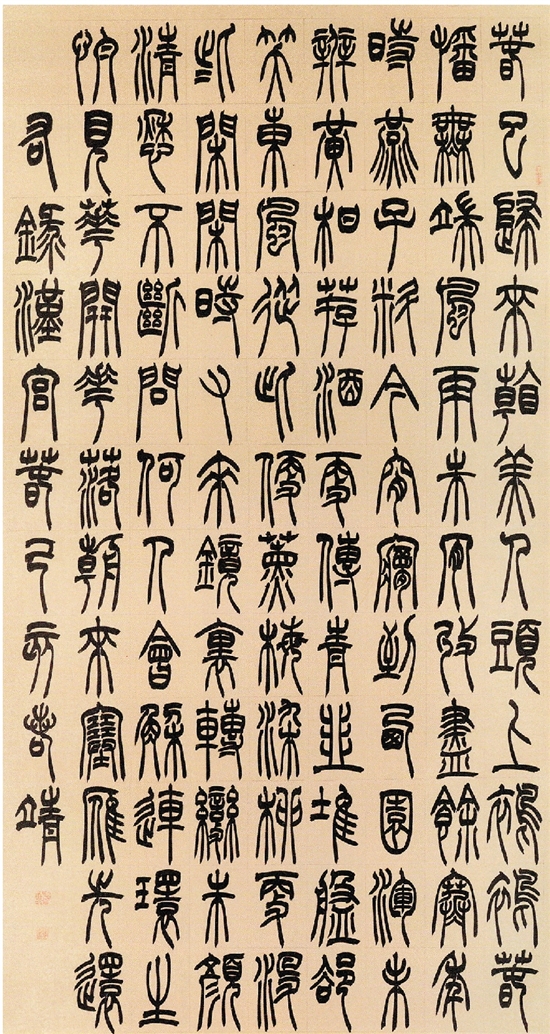 春已歸來看美人頭上裊裊春
幡無端風雨未肯收盡餘寒年
時燕子料今宵夢到西園渾未
辦黃柑薦酒更傳青韭堆盤卻
笑東風從此便薰梅染柳更沒
些閑閑時又來鏡裏轉變朱顏
清愁不斷問何人會解連環生
怕見華開華落朝來塞雁先還
右錄漢宮春 靖